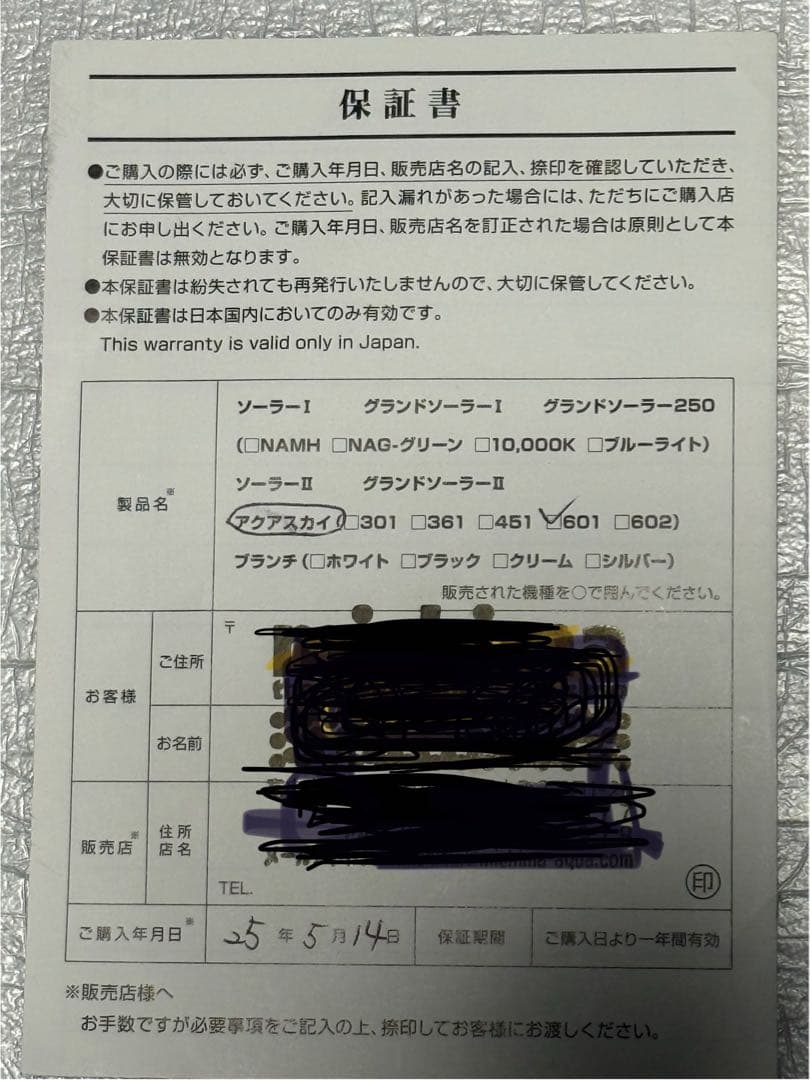 保証書
●ご購入の際には必ず、ご購入年月日、販売店名の記入、捺印を確認していただき、
大切に保管しておいてください。記入漏れがあった場合には、ただちにご購入店
にお申し出ください。ご購入年月日、販売店名を訂正された場合は原則として本
保証書は無効となります。
●本保証書は紛失されても再発行いたしませんので、大切に保管してください。
●本保証書は日本国内においてのみ有効です。
This warranty is valid only in Japan.
製品名※
ソーラーⅠ グランドソーラーⅠ グランドソーラー250
(□NAMH □NAG-グリーン □10,000K □ブルーライト)
ソーラーⅡ グランドソーラーⅡ
アクアスカイ(□301 □361 □451 ☑601 □602)
ブランチ(□ホワイト □ブラック □クリーム □シルバー)
販売された機種を○で囲んでください。
お客様
ご住所
〒
お名前
販売店※
住所
店名
aqua.com
TEL.
印
ご購入年月日※
25年5月14日
保証期間
ご購入日より一年間有効
※販売店様へ
お手数ですが必要事項をご記入の上、捺印してお客様にお渡しください。